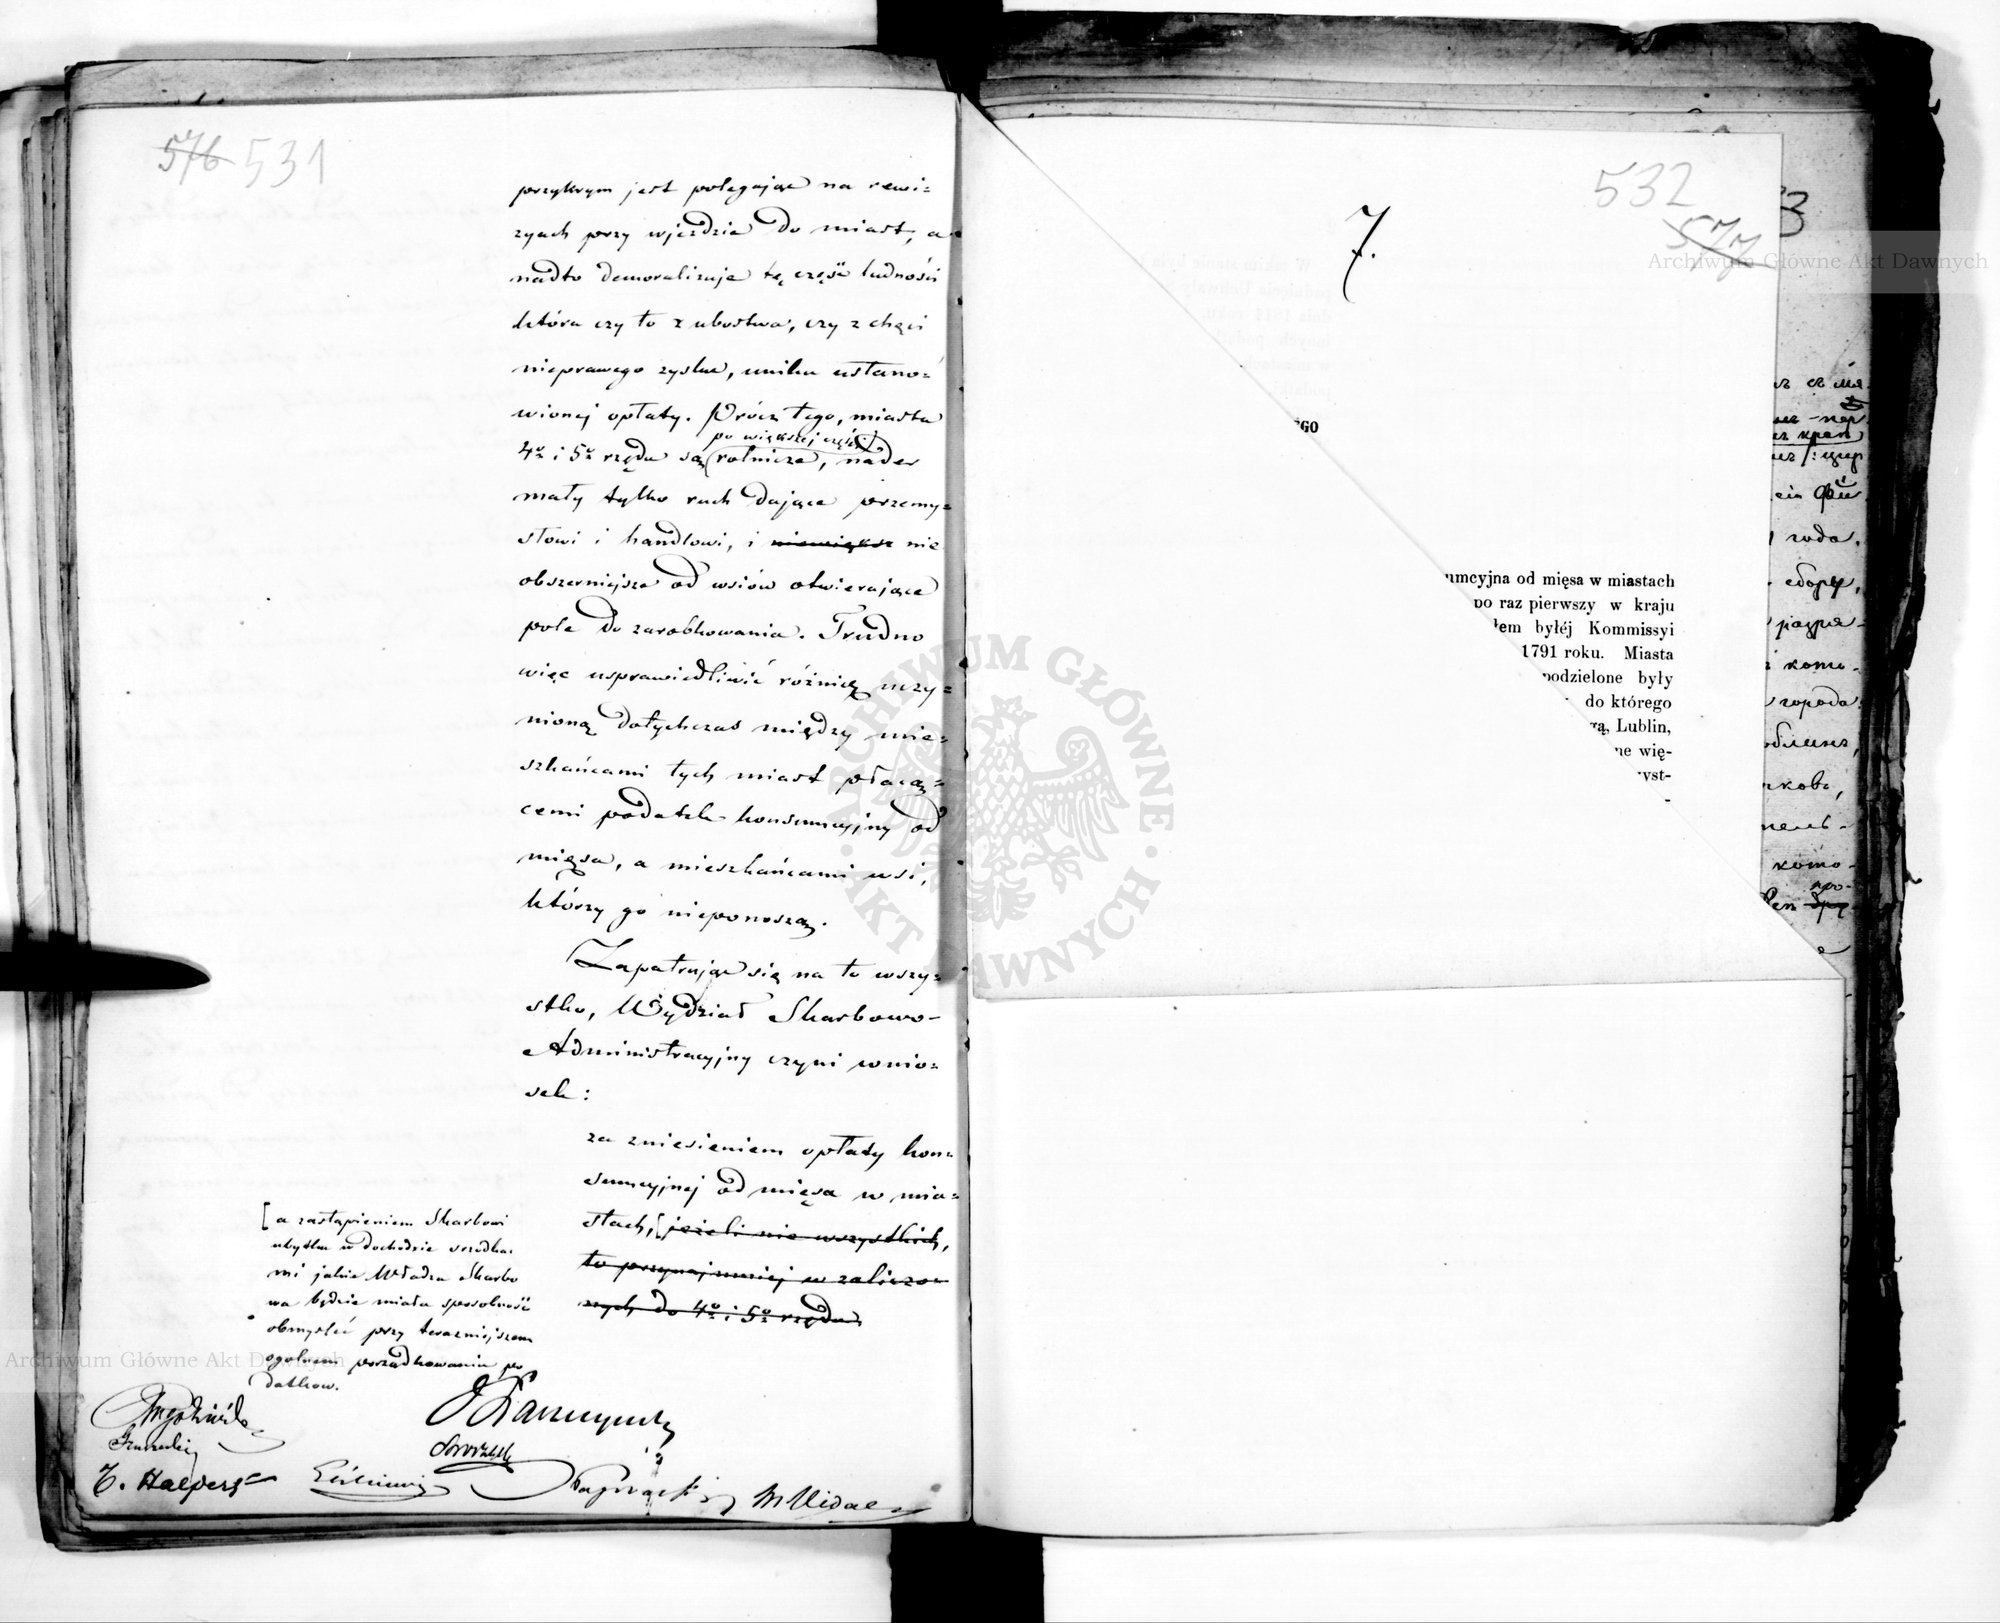 576 531
przykrym jest polegając na rewi=
zyach przy wjeździe do miast, a
nadto demoralizuje tę część ludności
która czy to z ubóstwa, czy z chęci
nieprawego zysku, unika ustano=
wionej opłaty. Prócz tego, miasta
po większej części
4º i 5º rzędu są rolnicze, nader
mały tylko ruch dające przemy=
słowi i handlowi, i nie
obszerniejsze od wsiów otwierające
pole do zarobkowania. Trudno
więc usprawiedliwić różnicę uczy=
nioną dotychczas między mie=
szkańcami tych miast płacą=
cemi podatek konsumcyjny od
mięsa, a mieszkańcami wsi,
którzy go nieponoszą.
Zapatrując się na to wszy=
stko, Wydział Skarbowo-
Administracyjny czyni wnio=
sek:
za zniesieniem opłaty kon=
sumcyjnej od mięsa w mia=
stach, [jeżeli nie wszystkich,
to przynajmniej w zaliczo=
nych do 4º i 5º rzędu
[a zastąpieniem Skarbowi
ubytku w dochodzie środka=
mi jakie Władza Skarbo
wa będzie miała sposobność
obmyśleć przy teraźniejszem
ogólnem porządkowaniu po
datkow.
532
577
7.
3
EGO
umcyjna od mięsa w miastach
po raz pierwszy w kraju
łem byłéj Kommissyi
1791 roku. Miasta
podzielone były
do którego
gą, Lublin,
ne wię-
yst-
ARCHIWUM GŁÓWNE
· AKT DAWNYCH ·
Archiwum Główne Akt Dawnych
Archiwum Główne Akt Dawnych